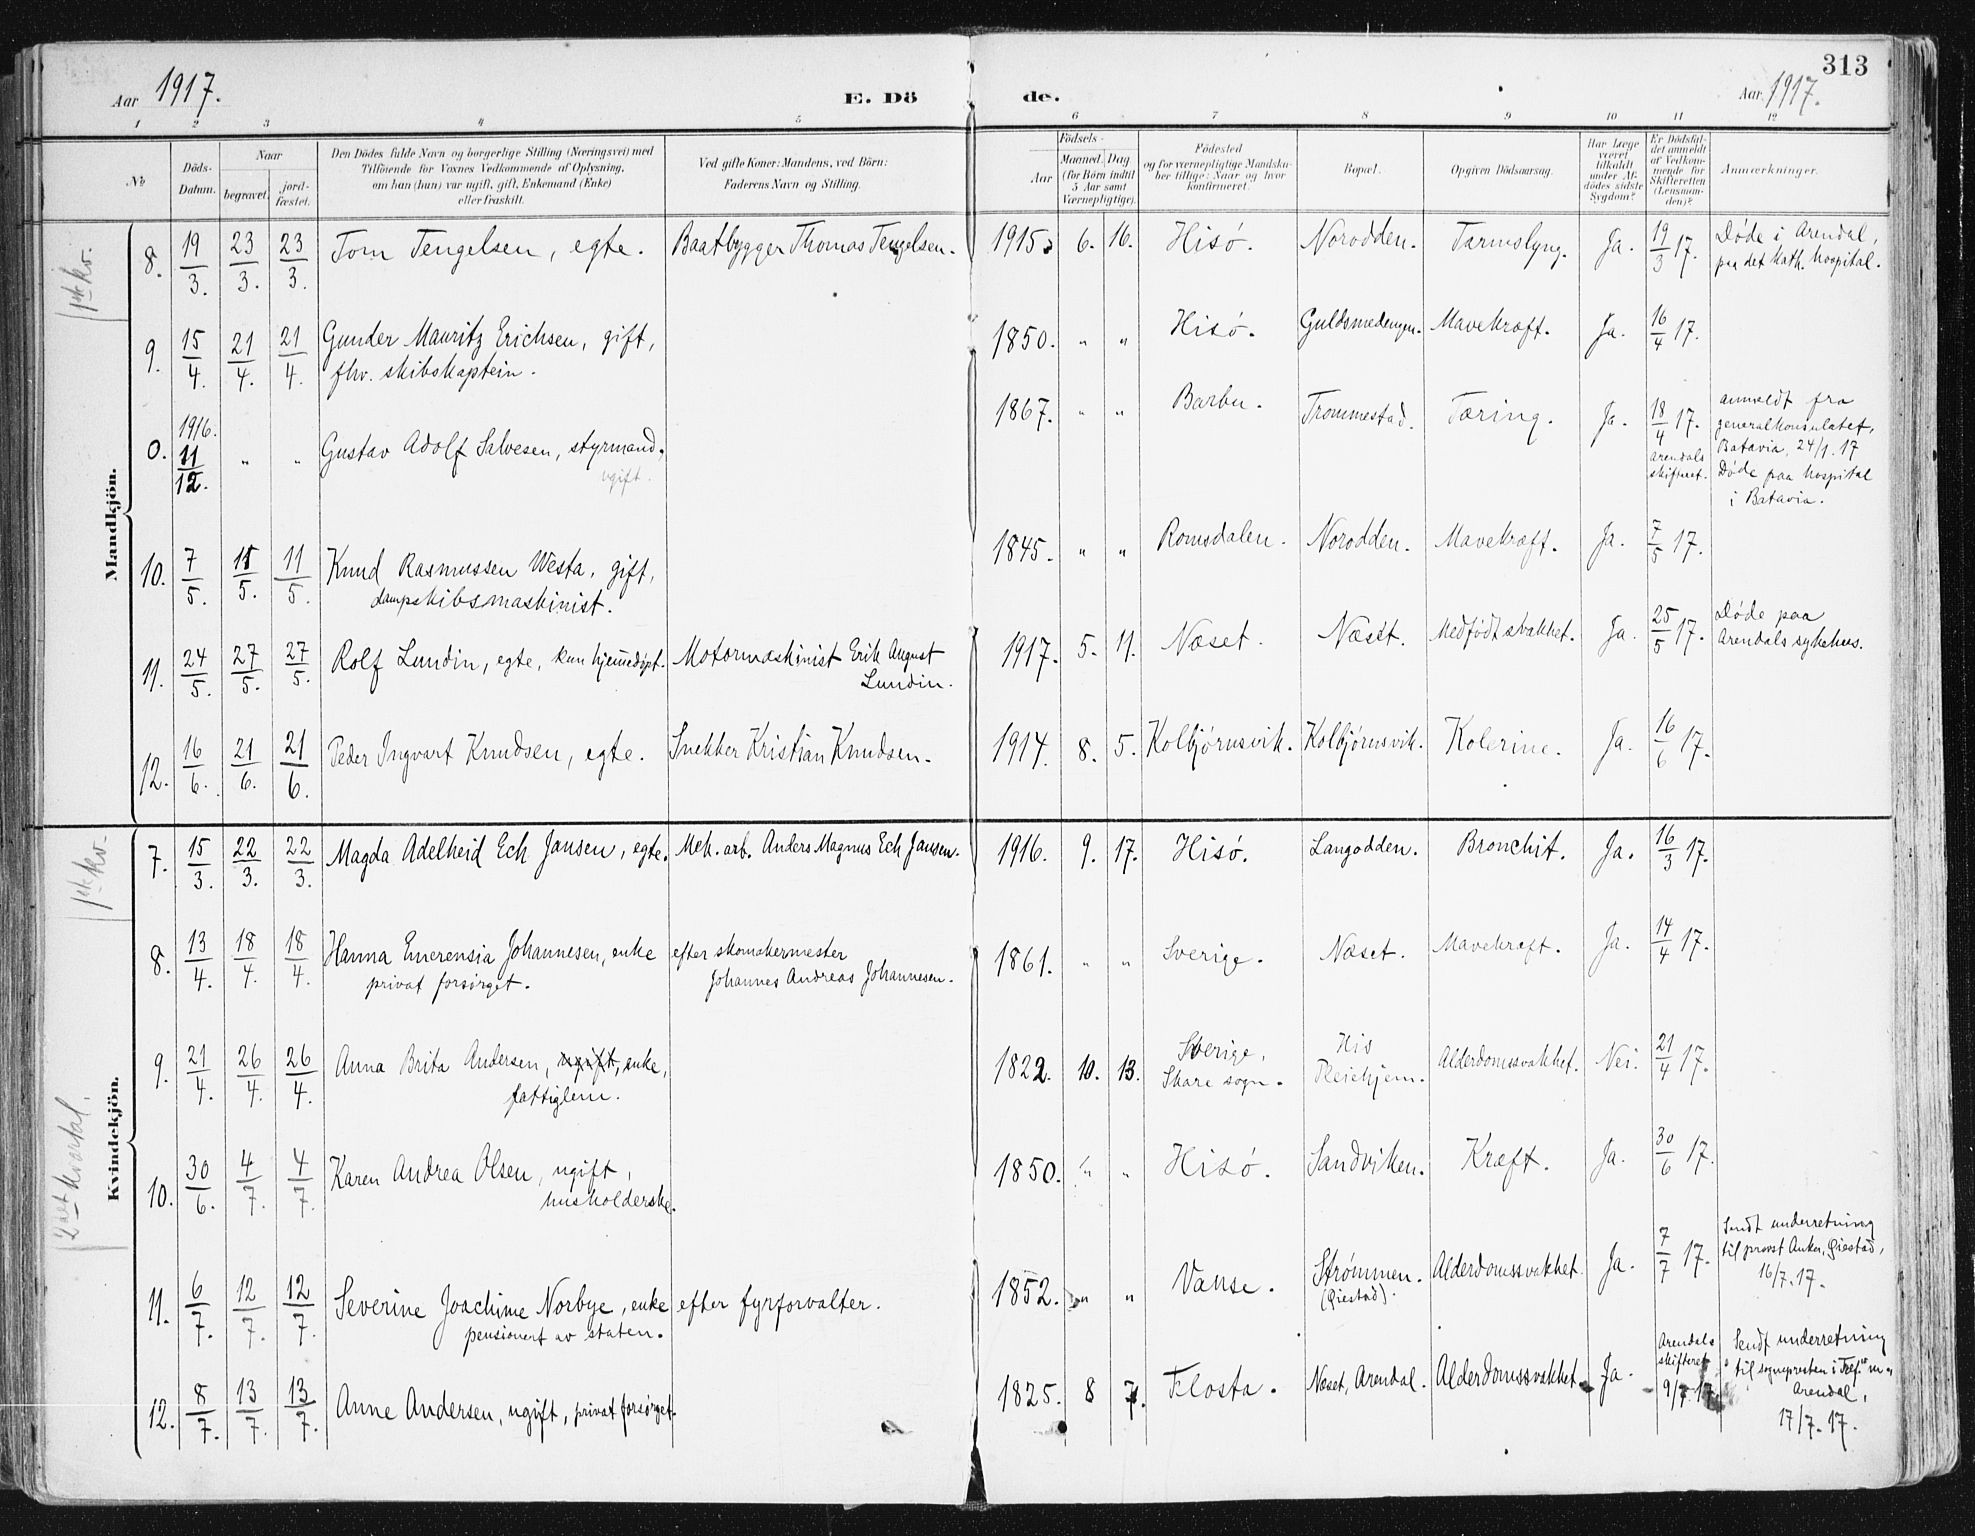 313
Aar 1917. E. Dö de. Aar 1917.
1 2 3 4 5 6 7 8 9 10 11 12
№
Döds-Datum.
Naar
begravet. jord-fæstet.
Den Dödes fulde Navn og borgerlige Stilling (Næringsvei) med
Tilföiende for Voxnes Vedkommende af Oplysning,
om han (hun) var ugift, gift, Enkemand (Enke)
eller fraskilt.
Ved gifte Koner: Mandens, ved Börn:
Faderens Navn og Stilling.
Födsels-
Aar
Maaned. Dag
(for Börn indtil
5 Aar samt
Værnepligtige).
Födested
og for værnepligtige Mandskaber tillige: Naar og hvor
konfirmeret.
Bopæl.
Opgiven Dödsaarsag.
Har Læge
været
tilkaldt
under Afdödes sidste
Sygdom?
Er Dödsfaldet anmeldt
af Vedkommende for
Skifteretten
(Lensmanden)?
Anmærkninger.
1ste kv.
Mandkjön.
8. 19/3. 23/3. 23/3. Tom Tengelsen, egte. Baatbygger Thomas Tengelsen. 1915. 6. 16. Hisö. Norodden. Tarmslyng. Ja. 19/3 17. Döde i Arendal,
paa det kath. hospital.
9. 15/4. 21/4. 21/4. Gunder Mauritz Erichsen, gift,
fhv. skibskaptein. 1850. " " Hisö. Guldsmedengen. Mavekræft. Ja. 16/4 17.
0. 1916. 11/12. " " Gustav Adolf Salvesen, styrmand.
ugift. 1867. " " Barbu. Trommestad. Tæring. Ja. 18/4 17. Arendals
skifteret. anmeldt fra
generalkonsulatet,
Batavia, 24/1. 17
Döde paa hospital
i Batavia.
10. 7/5. 11/5. 11/5. Knud Rasmussen Westa, gift,
dampskibsmaskinist. 1845. " " Romsdalen. Norodden. Mavekræft. Ja. 7/5 17.
11. 24/5. 27/5. 27/5. Rolf Lundin, egte, kun hjemmedöpt. Motormaskinist Erik August
Lundin. 1917. 5. 11. Næset. Næset. Medfödt svakhet. Ja. 25/5 17. Döde paa
Arendals sykehus.
12. 16/6. 21/6. 21/6. Peder Ingvart Knudsen, egte. Snekker Kristian Knudsen. 1914. 8. 5. Kolbjörnsvik. Kolbjörnsvik. Kolerine. Ja. 16/6 17.
1ste kv.
2det kvartal.
Kvindekjön.
7. 15/3. 22/3. 22/3. Magda Adelheid Eck Jansen, egte. Mek. arb. Anders Magnus Eck Jansen. 1916. 9. 17. Hisö. Langodden. Bronchit. Ja. 16/3 17.
8. 13/4. 18/4. 18/4. Hanna Emerensia Johannesen, enke
privat forsörget. efter skomakermester
Johannes Andreas Johannesen. 1861. " " Sverige. Næset. Mavekræft. Ja. 14/4 17.
9. 21/4. 26/4. 26/4. Anna Brita Andersen, ugift, enke,
fattiglem. 1822. 10. 13. Sverige,
Skare sogn. His
Pleiehjem. Alderdomssvakhet. Nei. 21/4 17.
10. 30/6. 4/7. 4/7. Karen Andrea Olsen, ugift,
husholderske. 1850. " " Hisö. Sandviken. Kræft. Ja. 30/6 17.
11. 6/7. 12/7. 12/7. Severine Joachime Norbye, enke
pensionert av staten. efter fyrforvalter. 1852. " " Vanse. Strömmen.
(Öiestad). Alderdomssvakhet. Ja. 7/7 17. Sendt underretning
til provst Anker, Öiestad,
16/7. 17.
12. 8/7. 13/7. 13/7. Anne Andersen, ugift, privat forsörget. 1825. 8 7. Flosta. Næset, Arendal. Alderdomssvakhet. Ja. Arendals
skifteret
9/7. 17 Sendt underretning
til sognepresten i Tref.
Arendal,
17/7. 17.